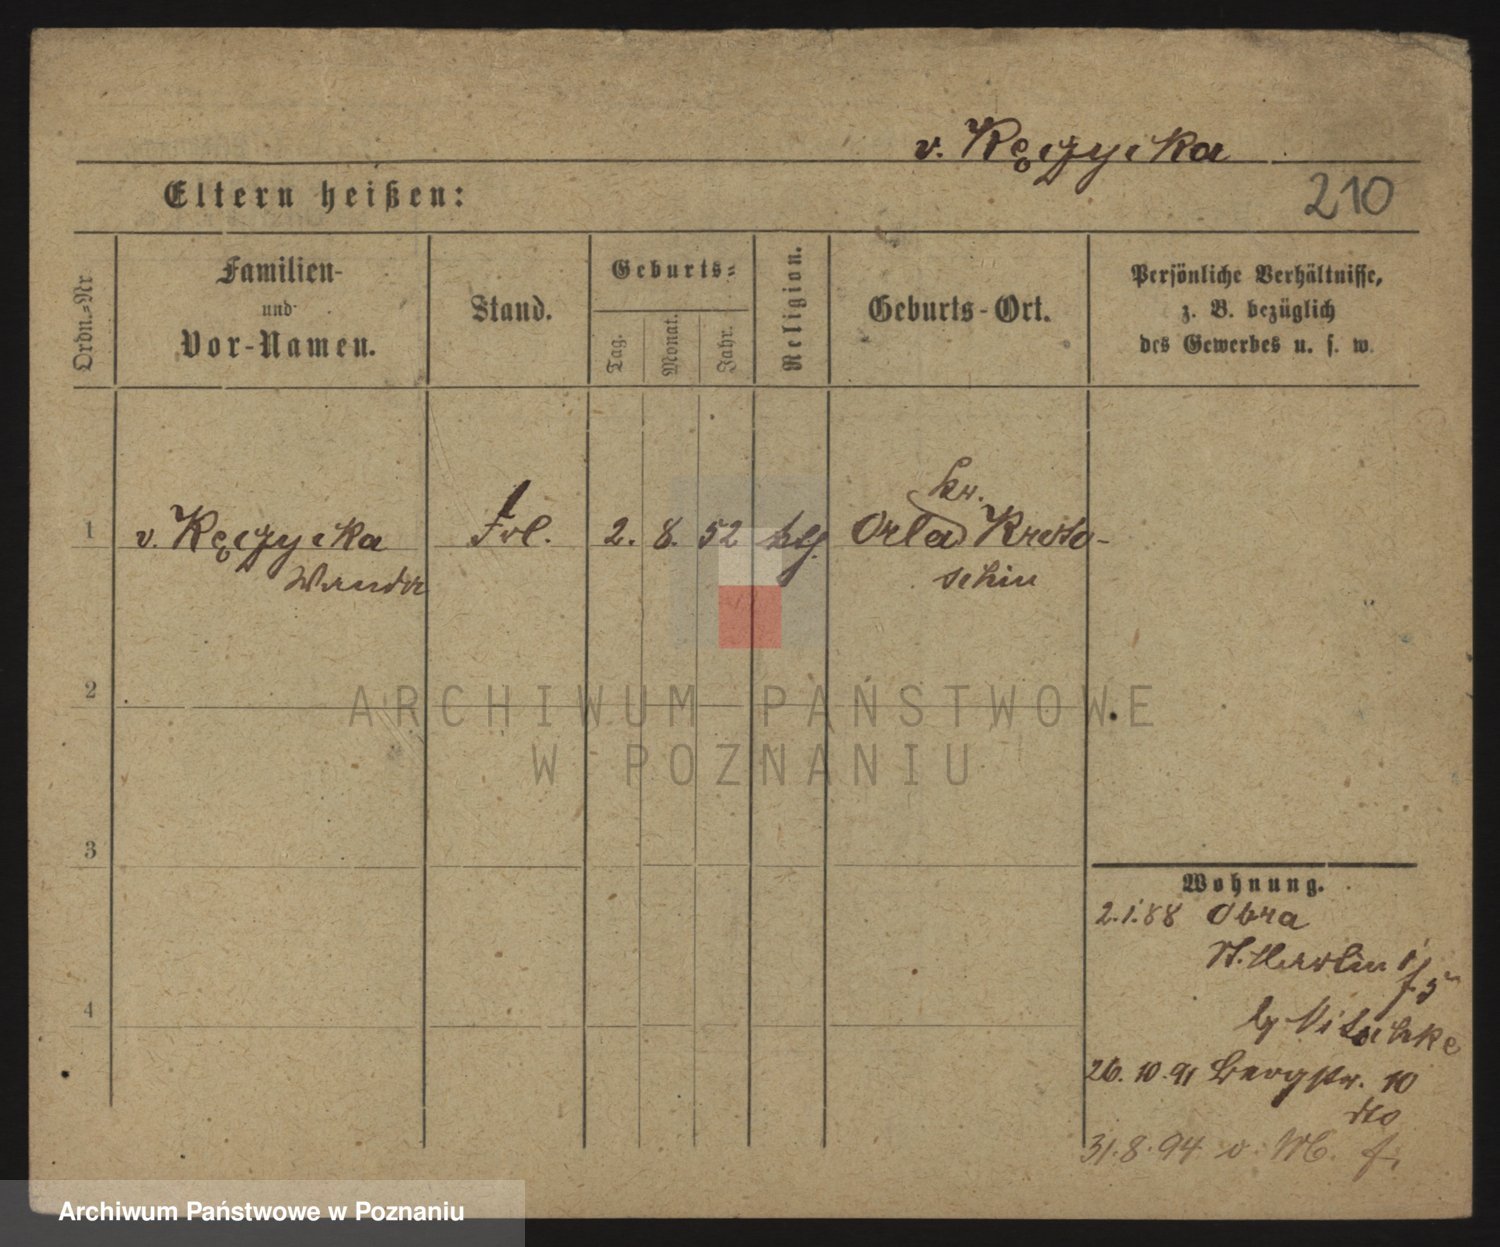 v. Kęczycka
Eltern heißen:
210
Ordn.-Nr
Familien-
und
Vor-Namen.
Stand.
Geburts-
Tag.
Monat.
Jahr.
Religion.
Geburts-Ort.
Persönliche Verhältnisse,
z. B. bezüglich
des Gewerbes u. s. w.
kr.
1 v. Kęczycka Frl. 2. 8. 52 Orla Kroto-
Wanda schin
2
ARCHIWUM PAŃSTWOWE
W POZNANIU
3
Wohnung.
2.1.88 Obra
St. Martin
4
by Nitschke
26.10.91 Bergstr. 10
dto
31.8.94 v.
Archiwum Państwowe w Poznaniu